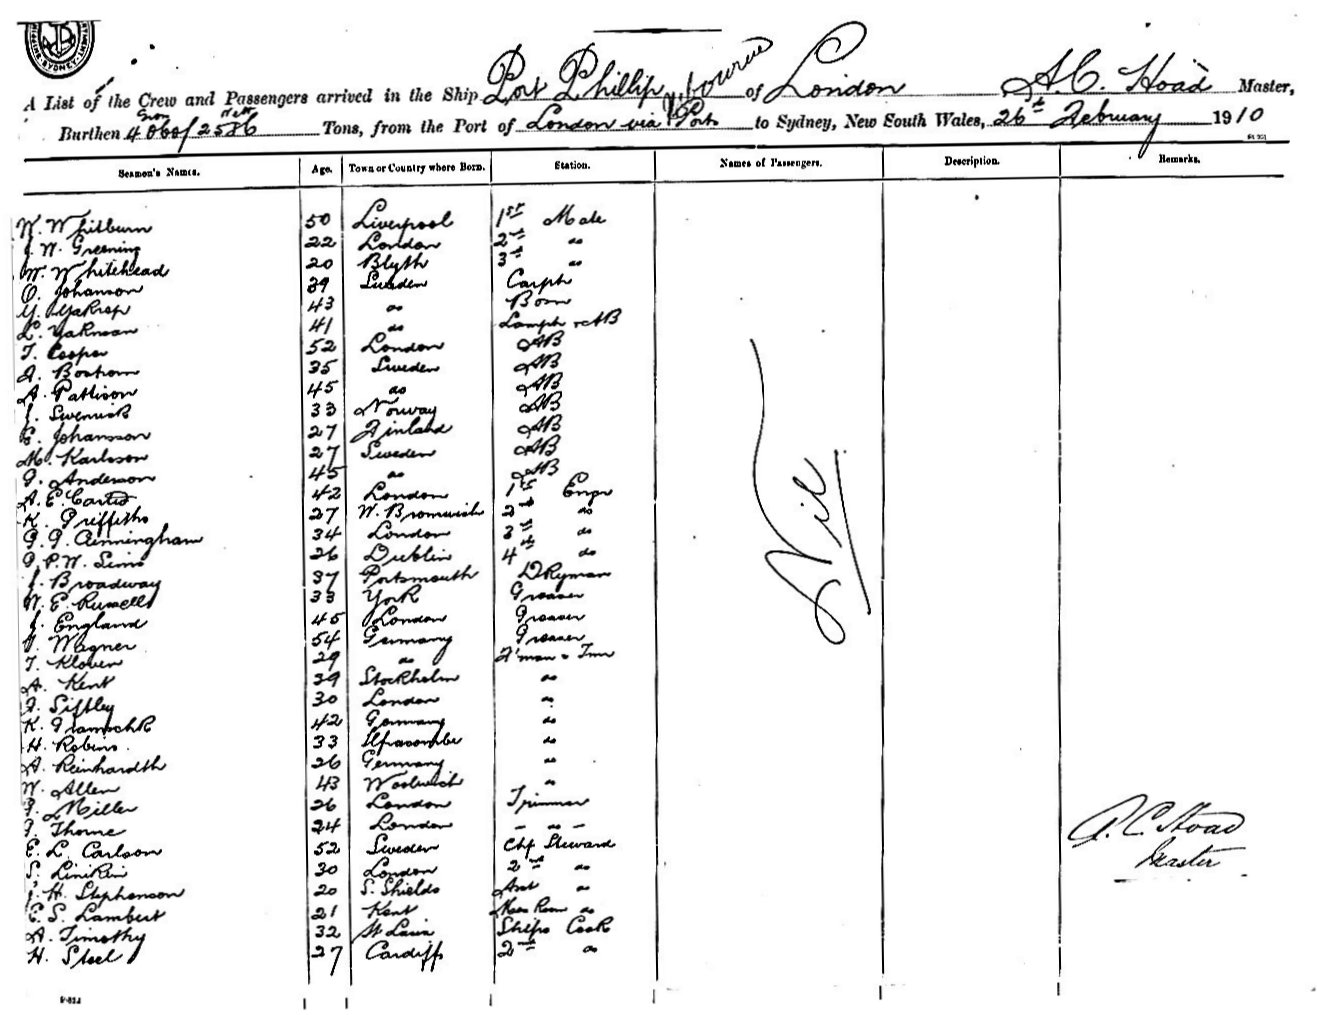 A List of the Crew and Passengers arrived in the Ship Port Phillip of London A. C. Hoad Master,
Burthen 4060/2586 Tons, from the Port of London via Ports to Sydney, New South Wales, 26th February 1910
Seamen's Names. Age. Town or Country where Born. Station. Names of Passengers. Description. Remarks.
W. Whitburn 50 Liverpool 1st Mate
J. W. Greening 22 London 2nd do
W. Whitehead 20 Blyth 3rd do
O. Johanson 39 Sweden Carptr
43 do Bosn
41 do Lamptr & AB
T. Cooper 52 London AB
35 Sweden AB
A. Pattison 45 do AB
J. 33 Norway AB
E. Johansson 27 Finland AB
M. Karlsson 27 Sweden AB
G. Anderson 45 do AB
A. E. 42 London 1st Engr
K. Griffiths 27 W. Bromwich 2nd do
G. G. Cunningham 34 London 3rd do
G. P. W. Sims 26 Dublin 4th do
J. Broadway 37 Portsmouth DKyman
W. E. Russell 33 York Greaser
J. England 45 London Greaser
Wagner 54 Germany Greaser
T. 29 do F'man & Tmr
A. Kent 39 Stockholm do
30 London do
K. 42 Germany do
H. Robins 33 Ilfracombe do
A. Reinhardth 26 Germany do
W. Allen 43 Woolwich do
Miller 26 London Trimmer
Thorne 24 London - do -
E. L. Carlson 52 Sweden Chf Steward
S. 30 London 2nd do
J. H. Stephenson 20 S. Shields Asst do
E. S. Lambert 21 Kent Mess Room do
A. Timothy 32 Ships Cook
H. Steel 27 Cardiff 2nd do
Nil
A. C. Hoad
Master